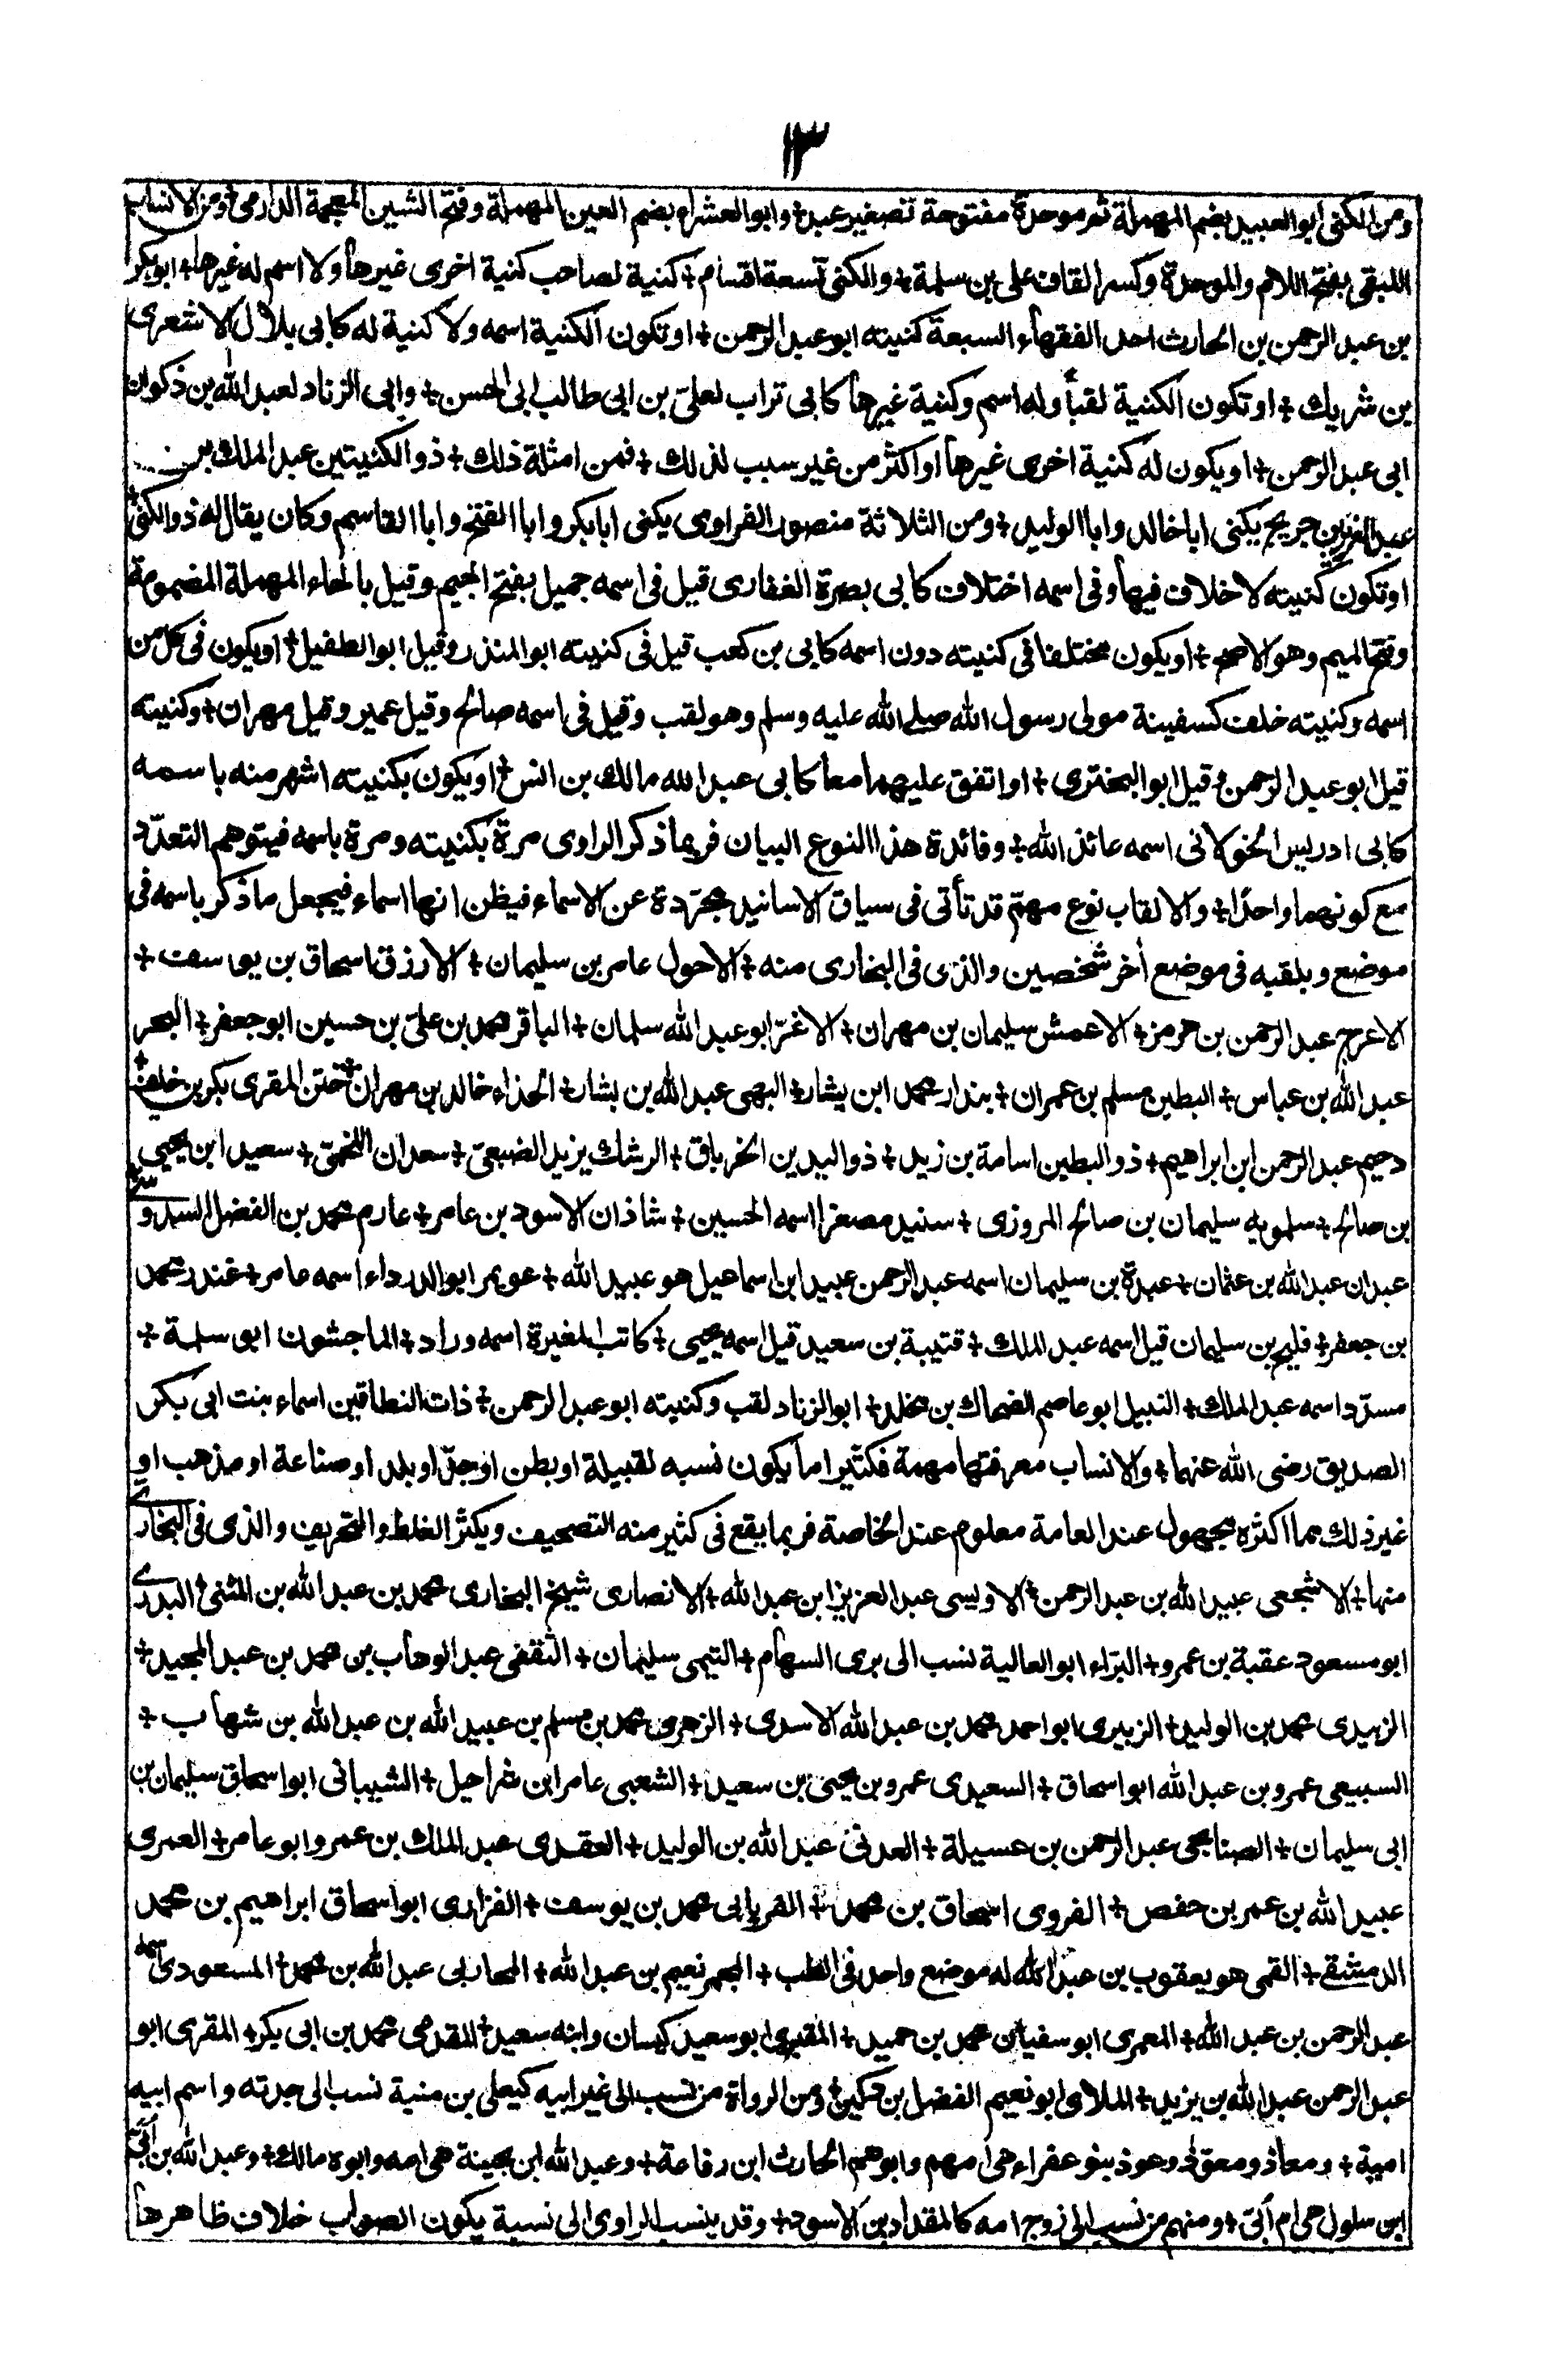 ١٣
ومن الكنى ابو العبيد بضم المهملة ثم موحدة مفتوحة تصغير عبد + وابو العشراء بضم العين المهملة وفتح الشين المعجمة الدارمى + ومن الانساب
اللبقى بفتح اللام والموحدة وكسر القاف على بن سلمة + والكنى تسعة اقسام + كنية لصاحب كنية اخرى غيرها ولا اسم له غيرها + ابو بكر
بن عبد الرحمن بن الحارث احد الفقهاء السبعة كنيته ابو عبد الرحمن + او تكون الكنية اسمه ولا كنية له كابى بلال الاشعرى
بن شريك + او تكون الكنية لقبا وله اسم وكنية غيرها كابى تراب لعلىّ بن ابى طالب ابى الحسن + وابى الزناد لعبد الله بن ذكوان
ابى عبد الرحمن + او يكون له كنية اخرى غيرها او اكثر من غير سبب لذلك + فمن امثلة ذلك + ذو الكنيتين عبد الملك بن
عبد العزيز بن جريج يكنى ابا خالد وابا الوليد + ومن الثلاثة منصور الفراوى يكنى ابا بكر وابا الفتح وابا القاسم وكان يقال له ذو الكنى +
او تكون كنيته لا خلاف فيها وفى اسمه اختلاف كابى بصرة الغفارى قيل فى اسمه جميل بفتح الجيم وقيل بالحاء المهملة المضمومة
وفتح الميم وهو الاصح + او يكون مختلفا فى كنيته دون اسمه كابى بن كعب قيل فى كنيته ابو المنذر وقيل ابو الطفيل + او يكون فى كل من
اسمه وكنيته خلف كسفينة مولى رسول الله صلى الله عليه وسلم وهو لقب وقيل فى اسمه صالح وقيل عمير وقيل مهران + وكنيته
قيل ابو عبد الرحمن + قيل ابو البختري + او اتفق عليهما معا كابى عبد الله مالك بن انس + او يكون بكنيته اشهر منه باسمه
كابى ادريس الخولانى اسمه عائذ الله + وفائدة هذا النوع البيان فربما ذكر الراوى مرة بكنيته ومرة باسمه فيتوهم التعدّد
مع كونهما واحدًا + والالقاب نوع مهمّ قد تأتى فى سياق الاسانيد مجرّدة عن الاسماء فيظن انها اسماء فيجعل ما ذكر باسمه فى
موضع وبلقبه فى موضع أخر شخصين والذى فى البخارى منه + الاحول عامر بن سليمان + الارزق اسحاق بن يوسف +
الاعرج عبد الرحمن بن هرمز + الاعمش سليمان بن مهران + الاغرّ ابو عبد الله سلمان + الباقر محمد بن علىّ بن حسين ابو جعفر + البحر
عبد الله بن عباس + البطين مسلم بن عمران + بندار محمد ابن بشار + البهى عبد الله بن بشار + الحذاء خالد بن مهران + ختن المقرى بكر بن خلف +
دحيم عبد الرحمن ابن ابراهيم + ذو البطين اسامة بن زيد + ذو اليدين الخرباق + الرشك يزيد الضبعىّ + سعدان اللخمىّ + سعيد ابن يحيى
بن صالح + سلمويه سليمان بن صالح المروزى + سنيد مصغرا اسمه الحسين + شاذان الاسود بن عامر + عارم محمد بن الفضل السدوسى
عبدان عبد الله بن عثمان + عبدة بن سليمان اسمه عبد الرحمن عبيد ابن اسماعيل هو عبيد الله + عويمر ابو الدرداء اسمه عامر + غندر محمد
بن جعفر + فليح بن سليمان قيل اسمه عبد الملك + قتيبة بن سعيد قيل اسمه يحيى + كاتب المغيرة اسمه وراد + الماجشون ابو سلمة +
مسدّد اسمه عبد الملك + النبيل ابو عاصم الضحاك بن مخلد + ابو الزناد لقب وكنيته ابو عبد الرحمن + ذات النطاقين اسماء بنت ابى بكر
الصديق رضى الله عنهما + والانساب معرفتها مهمة فكثيرا ما يكون نسبه لقبيلة او بطن او جدّ او بلد او صناعة او مذهب او
غير ذلك مما اكثره مجهول عند العامة معلوم عند الخاصة فربما يقع فى كثير منه التصحيف ويكثر الغلط والتحريف والذى فى البخارى
منها + الاشجعى عبيد الله بن عبد الرحمن + الاويسى عبد العزيز ابن عبد الله + الانصارى شيخ البخارى محمد بن عبد الله بن المثنى + البدرى
ابو مسعود عقبة بن عمرو + البرّاء ابو العالية نسب الى برى السهام + التيمى سليمان + الثقفى عبد الوهاب بن محمد بن عبد المجيد +
الزبيدى محمد بن الوليد + الزبيرى ابو احمد محمد بن عبد الله الاسدى + الزهرى محمد بن مسلم بن عبيد الله بن عبد الله بن شهاب +
السبيعى عمرو بن عبد الله ابو اسحاق + السعيدى عمرو بن يحيى بن سعيد + الشعبى عامر ابن شراحيل + الشيبانى ابو اسحاق سليمان بن
ابى سليمان + الصنابحى عبد الرحمن بن عسيلة + العدنى عبد الله بن الوليد + العقدى عبد الملك بن عمرو ابو عامر + العمرى
عبيد الله بن عمر بن حفص + الفروى اسحاق بن محمد + الفريابى محمد بن يوسف + الفزارى ابو اسحاق ابراهيم بن محمد
الدمشقى + القمى هو يعقوب بن عبد الله له موضع واحد فى الطب + المجمر نعيم بن عبد الله + المحاربى عبد الله بن محمد + المسعودى اسمه
عبد الرحمن بن عبد الله + المعمرى ابو سفيان محمد بن حميد + المقبرى ابو سعيد كيسان وابنه سعيد + المقدمى محمد بن ابى بكر + المقرى ابو
عبد الرحمن عبد الله بن يزيد + الملاى ابو نعيم الفضل بن دكين + ومن الرواة من نسب الى غير ابيه كيعلى بن منية نسب الى جدته واسم ابيه
امية + ومعاذ ومعوّذ وعوذ بنو عفراء هى امهم وابوهم الحارث ابن رفاعة + وعبد الله ابن بحينة هى امه وابوه مالك + وعبد الله بن أبىّ
ابن سلول هى ام أبىّ + ومنهم من نسب الى زوج امه كالمقداد بن الاسود + وقد ينسب الراوى الى نسبة يكون الصواب خلاف ظاهرها